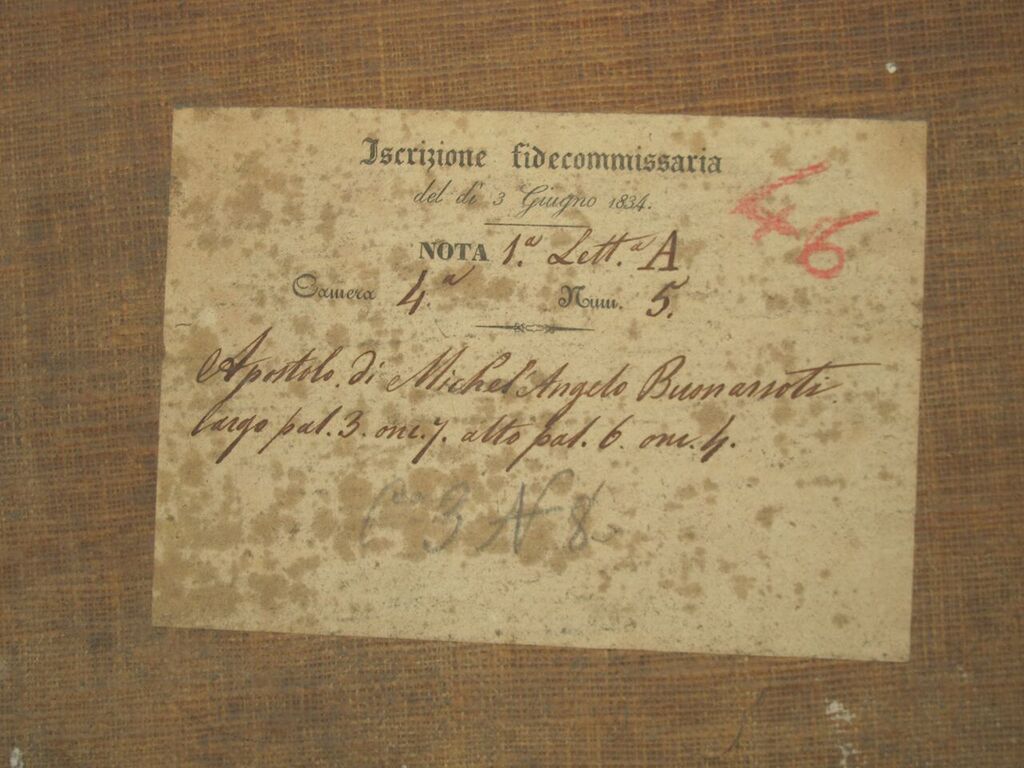 Iscrizione fidecommissaria
del dì 3 Giugno 1834.
46
NOTA 1.ª Lett.ª A
Camera 4.ª Num. 5.
Apostolo di Michel'Angelo Buonarroti
largo pal. 3. onc. 7. alto pal. 6. onc. 4.
3 N 8